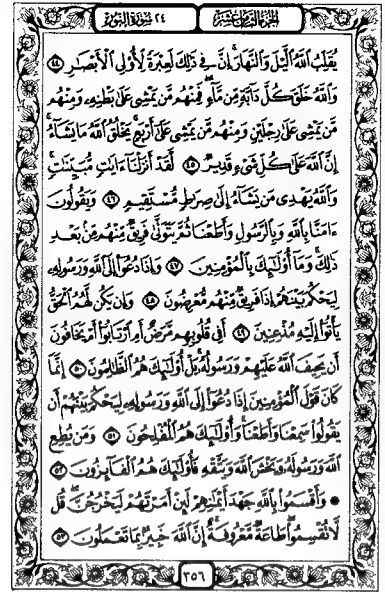 الجزء الثامن عشر
٢٤ سورة النور
يُقَلِّبُ ٱللَّهُ ٱلَّيْلَ وَٱلنَّهَارَ إِنَّ فِى ذَٰلِكَ لَعِبْرَةً لِّأُو۟لِى ٱلْأَبْصَٰرِ ٤٤
وَٱللَّهُ خَلَقَ كُلَّ دَآبَّةٍ مِّن مَّآءٍ فَمِنْهُم مَّن يَمْشِى عَلَىٰ بَطْنِهِۦ وَمِنْهُم
مَّن يَمْشِى عَلَىٰ رِجْلَيْنِ وَمِنْهُم مَّن يَمْشِى عَلَىٰٓ أَرْبَعٍ يَخْلُقُ ٱللَّهُ مَا يَشَآءُ
إِنَّ ٱللَّهَ عَلَىٰ كُلِّ شَىْءٍ قَدِيرٌ ٤٥ لَّقَدْ أَنزَلْنَآ ءَايَٰتٍ مُّبَيِّنَٰتٍ
وَٱللَّهُ يَهْدِى مَن يَشَآءُ إِلَىٰ صِرَٰطٍ مُّسْتَقِيمٍ ٤٦ وَيَقُولُونَ
ءَامَنَّا بِٱللَّهِ وَبِٱلرَّسُولِ وَأَطَعْنَا ثُمَّ يَتَوَلَّىٰ فَرِيقٌ مِّنْهُم مِّنۢ بَعْدِ
ذَٰلِكَ وَمَآ أُو۟لَٰٓئِكَ بِٱلْمُؤْمِنِينَ ٤٧ وَإِذَا دُعُوٓا۟ إِلَى ٱللَّهِ وَرَسُولِهِۦ
لِيَحْكُمَ بَيْنَهُمْ إِذَا فَرِيقٌ مِّنْهُم مُّعْرِضُونَ ٤٨ وَإِن يَكُن لَّهُمُ ٱلْحَقُّ
يَأْتُوٓا۟ إِلَيْهِ مُذْعِنِينَ ٤٩ أَفِى قُلُوبِهِم مَّرَضٌ أَمِ ٱرْتَابُوٓا۟ أَمْ يَخَافُونَ
أَن يَحِيفَ ٱللَّهُ عَلَيْهِمْ وَرَسُولُهُۥ بَلْ أُو۟لَٰٓئِكَ هُمُ ٱلظَّٰلِمُونَ ٥٠ إِنَّمَا
كَانَ قَوْلَ ٱلْمُؤْمِنِينَ إِذَا دُعُوٓا۟ إِلَى ٱللَّهِ وَرَسُولِهِۦ لِيَحْكُمَ بَيْنَهُمْ أَن
يَقُولُوا۟ سَمِعْنَا وَأَطَعْنَا وَأُو۟لَٰٓئِكَ هُمُ ٱلْمُفْلِحُونَ ٥١ وَمَن يُطِعِ
ٱللَّهَ وَرَسُولَهُۥ وَيَخْشَ ٱللَّهَ وَيَتَّقْهِ فَأُو۟لَٰٓئِكَ هُمُ ٱلْفَآئِزُونَ ٥٢
۞ وَأَقْسَمُوا۟ بِٱللَّهِ جَهْدَ أَيْمَٰنِهِمْ لَئِنْ أَمَرْتَهُمْ لَيَخْرُجُنَّ قُل
لَّا تُقْسِمُوا۟ طَاعَةٌ مَّعْرُوفَةٌ إِنَّ ٱللَّهَ خَبِيرٌۢ بِمَا تَعْمَلُونَ ٥٣
٣٥٦